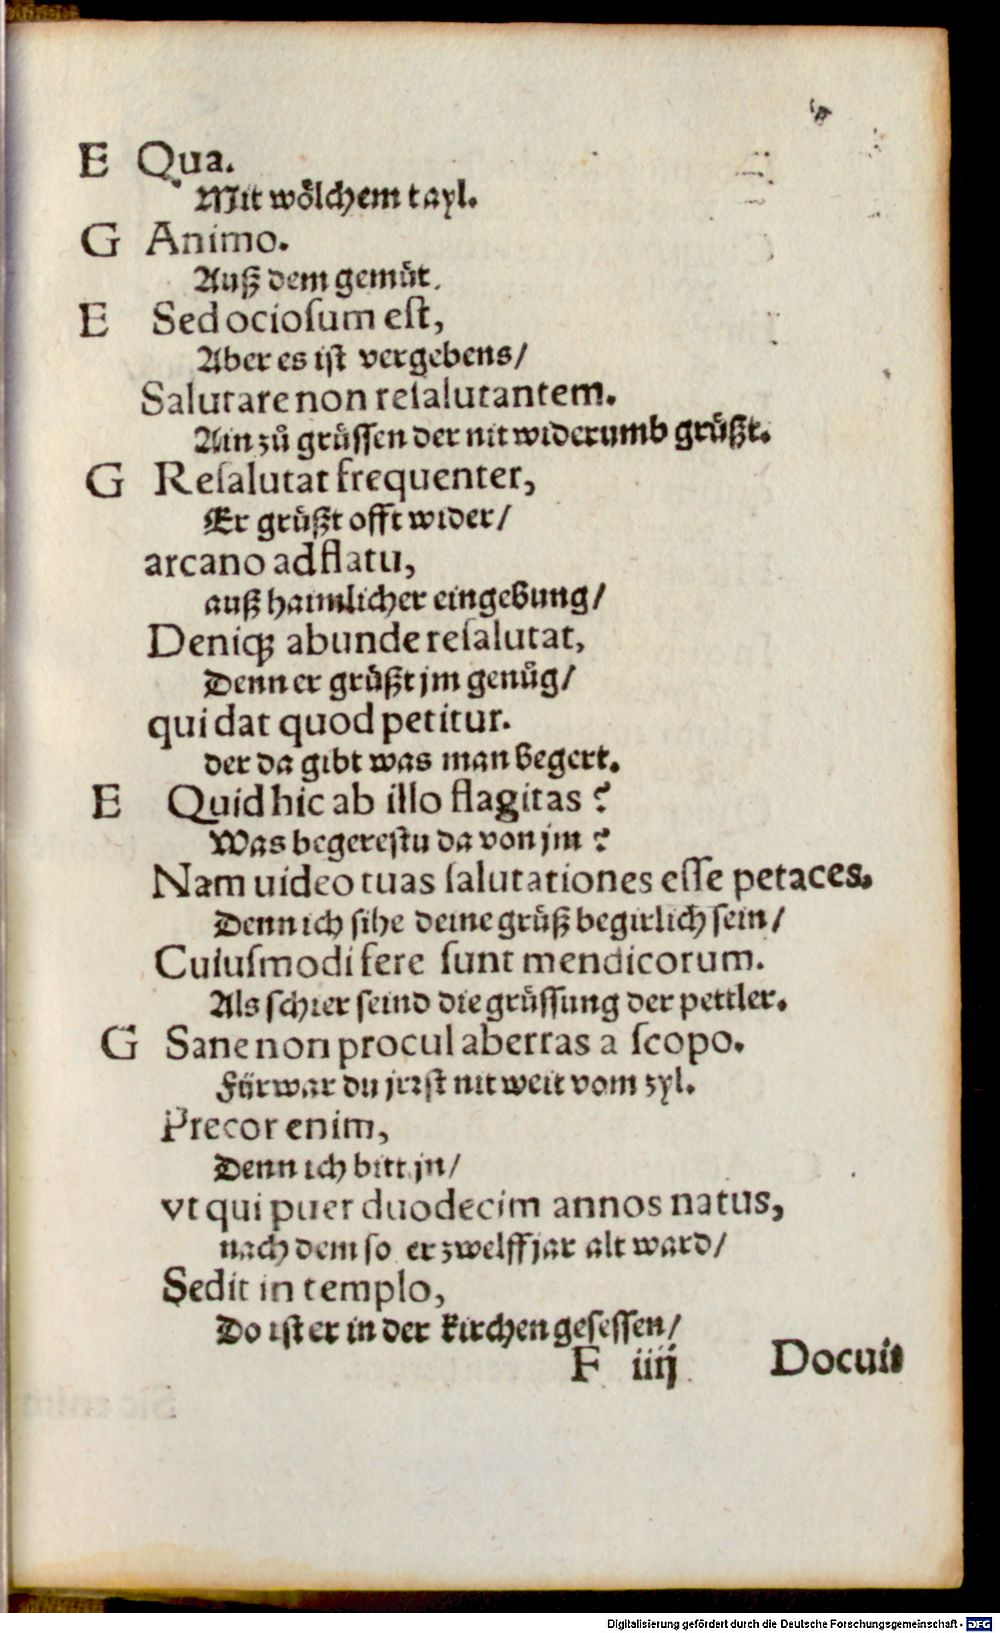 E Qua.
Mit woͤlchem tayl.
G Animo.
Auß dem gemuͤt.
E Sed ociosum est,
Aber es ist vergebens/
Salutare non resalutantem.
Ain zuͦ gruͤssen der nit widerumb gruͤßt.
G Resalutat frequenter,
Er gruͤßt offt wider/
arcano adflatu,
auß haimlicher eingebung/
Deniqꝫ abunde resalutat,
Denn er gruͤßt jm genuͦg/
qui dat quod petitur.
der da gibt was man begert.
E Quid hic ab illo flagitas?
Was begerestu da von jm?
Nam uideo tuas salutationes esse petaces.
Denn ich sihe deine gruͤß begirlich sein/
Cuiusmodi fere sunt mendicorum.
Als schier seind die gruͤssung der pettler.
G Sane non procul aberras a scopo.
Fürwar du jrrst nit weit vom zyl.
Precor enim,
Denn ich bitt jn/
vt qui puer duodecim annos natus,
nach dem so er zwelff jar alt ward/
Sedit in templo,
Do ist er in der kirchen gesessen/
F iiij Docuit
Digitalisierung gefördert durch die Deutsche Forschungsgemeinschaft - DFG